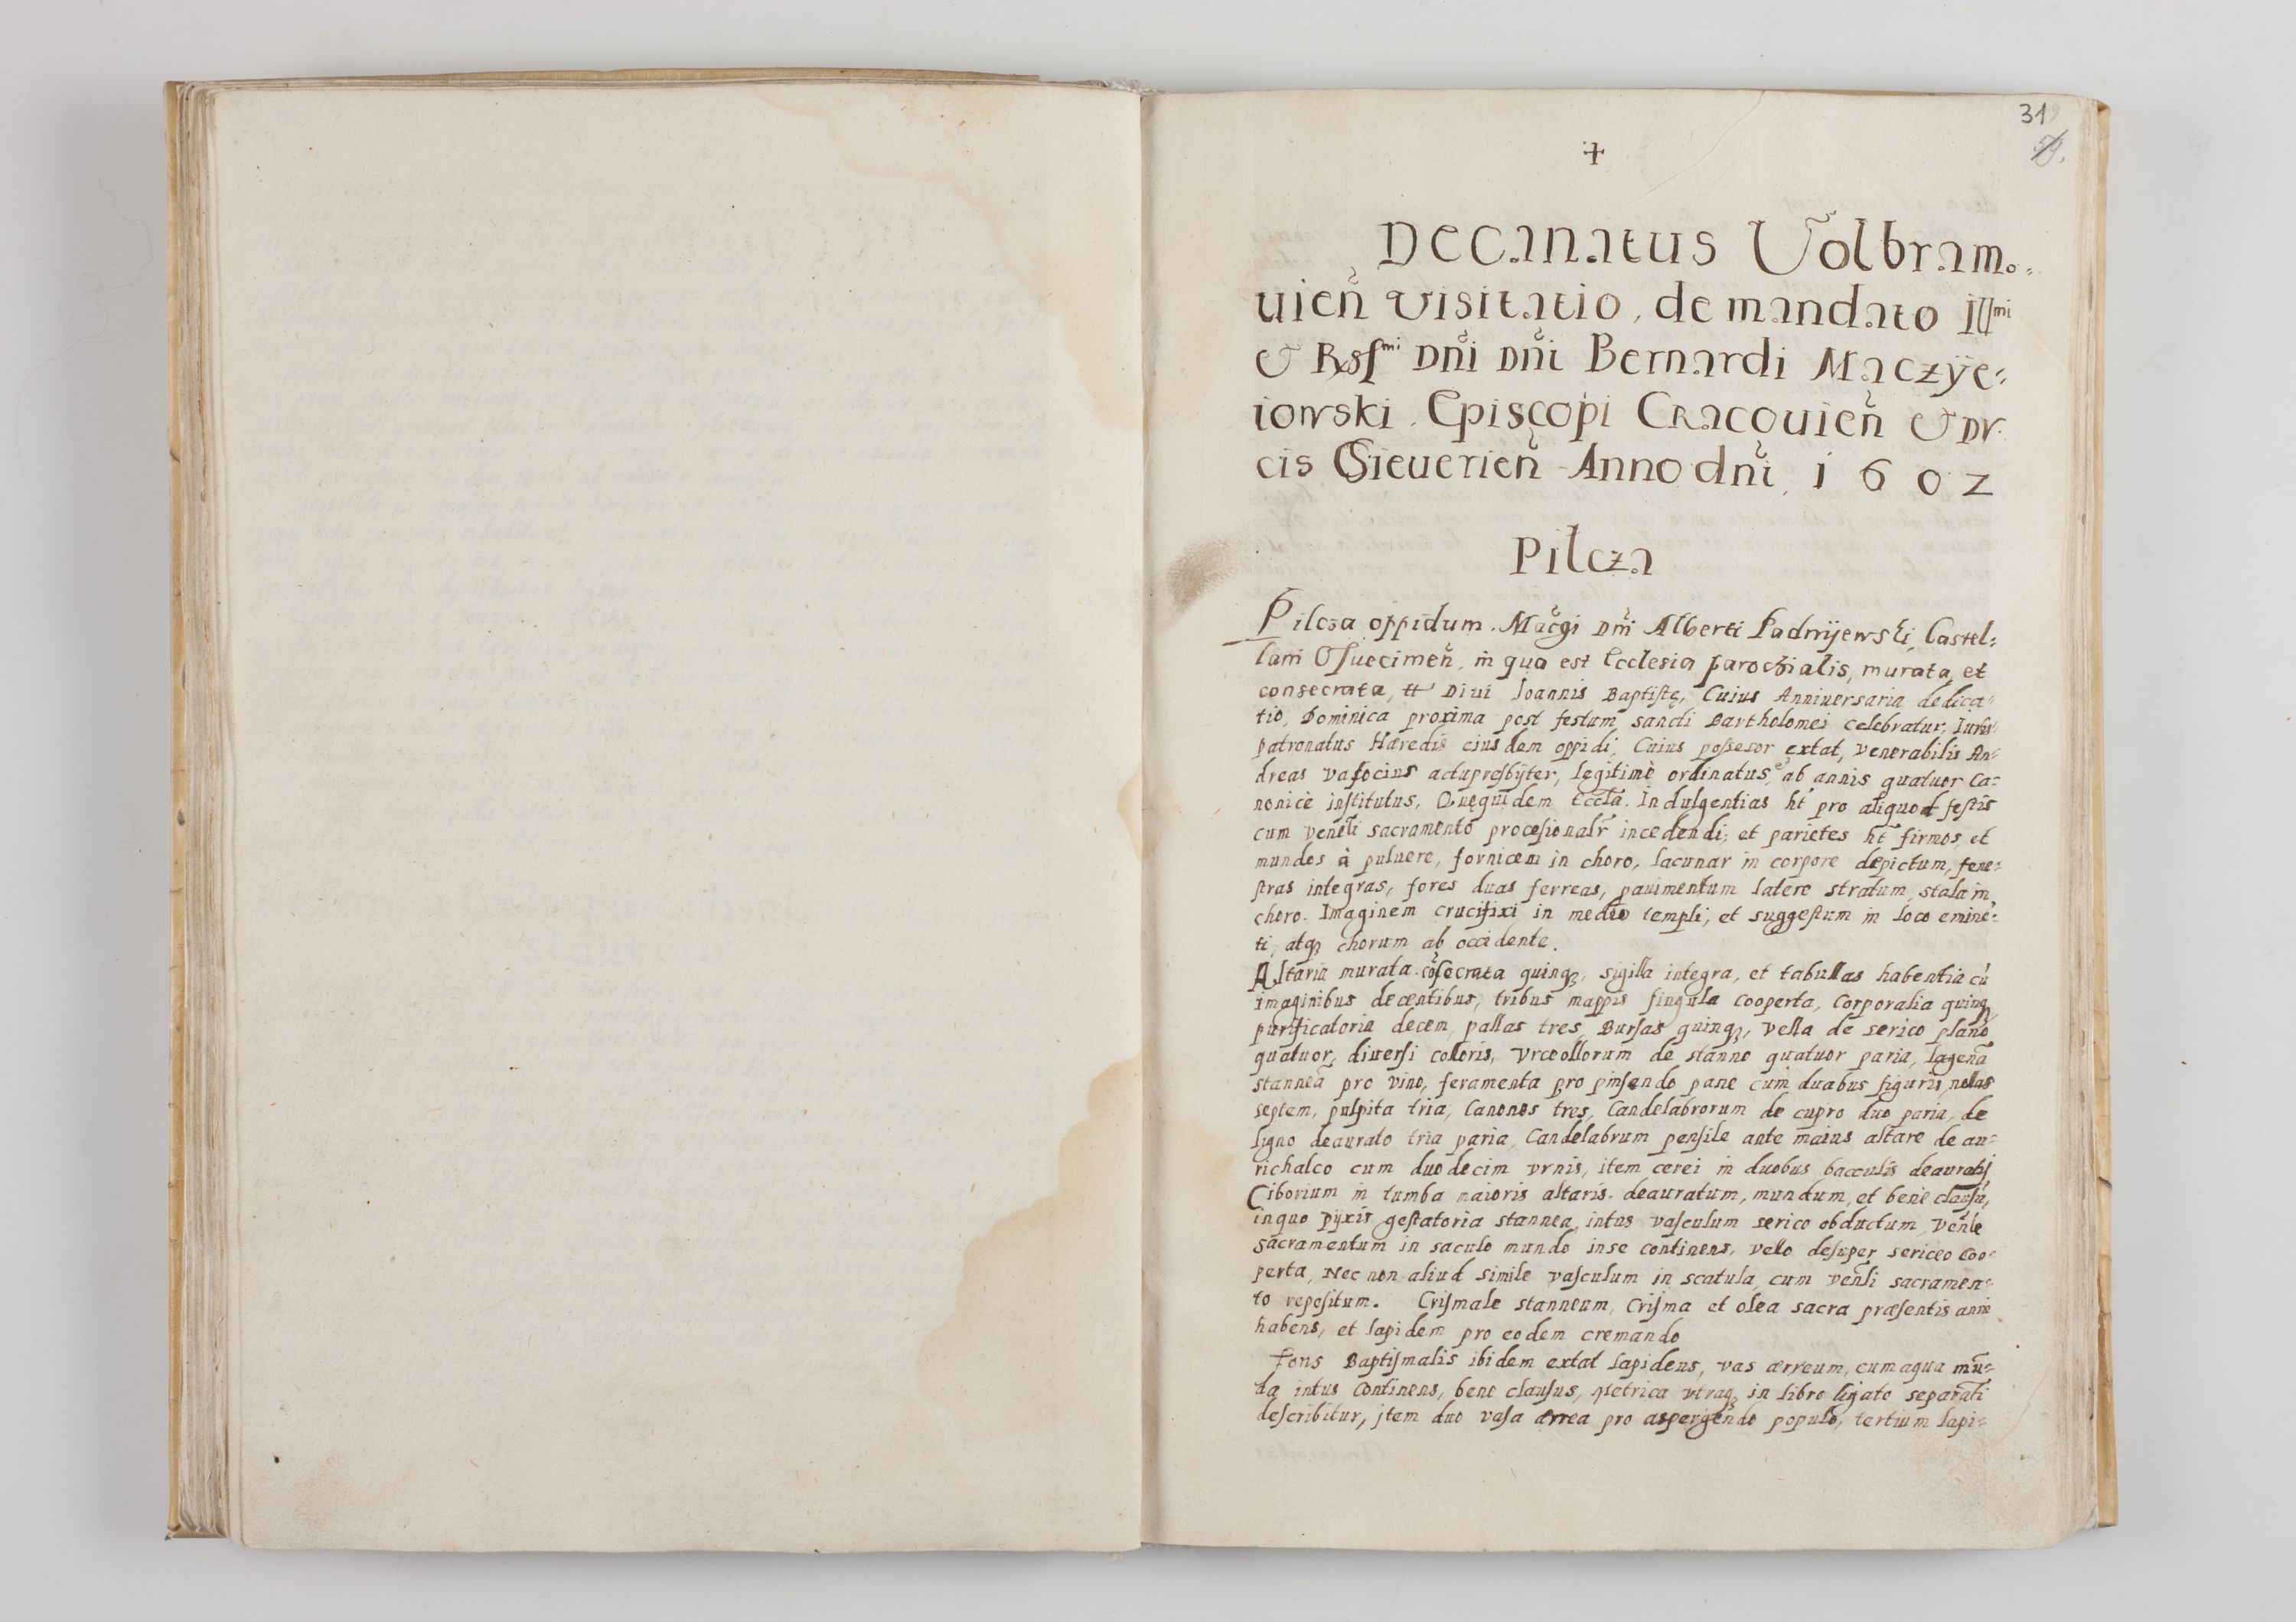 31
59.
+
Decanatus Uolbramo=
uieñ visitatio, de mandato Illmi
& Rssmi Dñi Dñi Bernardi Maczÿe=
iowski Episcopi Cracouieñ & Du
cis Sieuerieñ Anno dñi 1602
Pilcza
Pilcza oppidum Mãcgi Dñi Alberti Padnÿewski, Castel=
lani Osuecimeñ, in qua est Ecclesia parochialis, murata, et
consecrata, tt Diui Ioannis Baptistę, Cuius Anniuersaria dedica=
tio, Dominica proxima post festum sancti Bartholomei celebratur, Iuris
patronatus Hæredis eiusdem oppidi, Cuius possesor extat, venerabilis An=
dreas vasocius actupresbÿter, legitimè ordinatus, ab annis quatuor Ca=
nonicè institutus, Quęquidem Eccla. Indulgentias ht pro aliquod festis
cum venẽli sacramento procesionalr incedendi, et parietes ht firmos, et
mundos à puluere, fornicem in choro, lacunar in corpore depictum, fene=
stras integras, fores duas ferreas, pauimentum latere stratum, stala in
choro. Imaginem crucifixi in medio templi, et suggestum in loco emine=
ti, atq3 chorum ab occidente.
Altaria murata cõsecrata quinq3, sigilla integra, et tabullas habentia cũ
imaginibus decentibus, tribus mappis singula cooperta, Corporalia quinq3
purificatoria decem, pallas tres, Bursas quinq3, vella de serico plano
quatuor, diuersi colloris, vrceollorum de stanno quatuor paria, lagenã
stanneã pro vino, feramenta pro pinsendo pane cum duabus figuris, nolas
septem, pulpita tria, Canones tres, Candelabrorum de cupro duo paria, de
ligno deaurato tria paria, Candelabrum pensile ante maius altare de au=
richalco cum duodecim vrnis, item cerei in duobus bacculis deauratis
Ciborium in tumba maioris altaris deauratum, mundum, et bene clausũ,
inquo pÿxis gestatoria stannea, intus vasculum serico obductum, venle
sacramentum in saculo mundo inse continens, vello desuper sericeo coo=
perta, Nec non aliud simile vasculum in scatula, cum venli sacramen=
to repositum. Crismale stanneum, Crisma et olea sacra præsentis anni
habens, et lapidem pro eodem cremando
Fons Baptismalis ibidem extat lapideus, vas ærreum, cum aqua mũ=
da intus continens, bene clausus, metrica vtraq3 in libro ligato separati
describitur, jtem duo vasa ærrea pro aspergendo populo, tertium lapi=